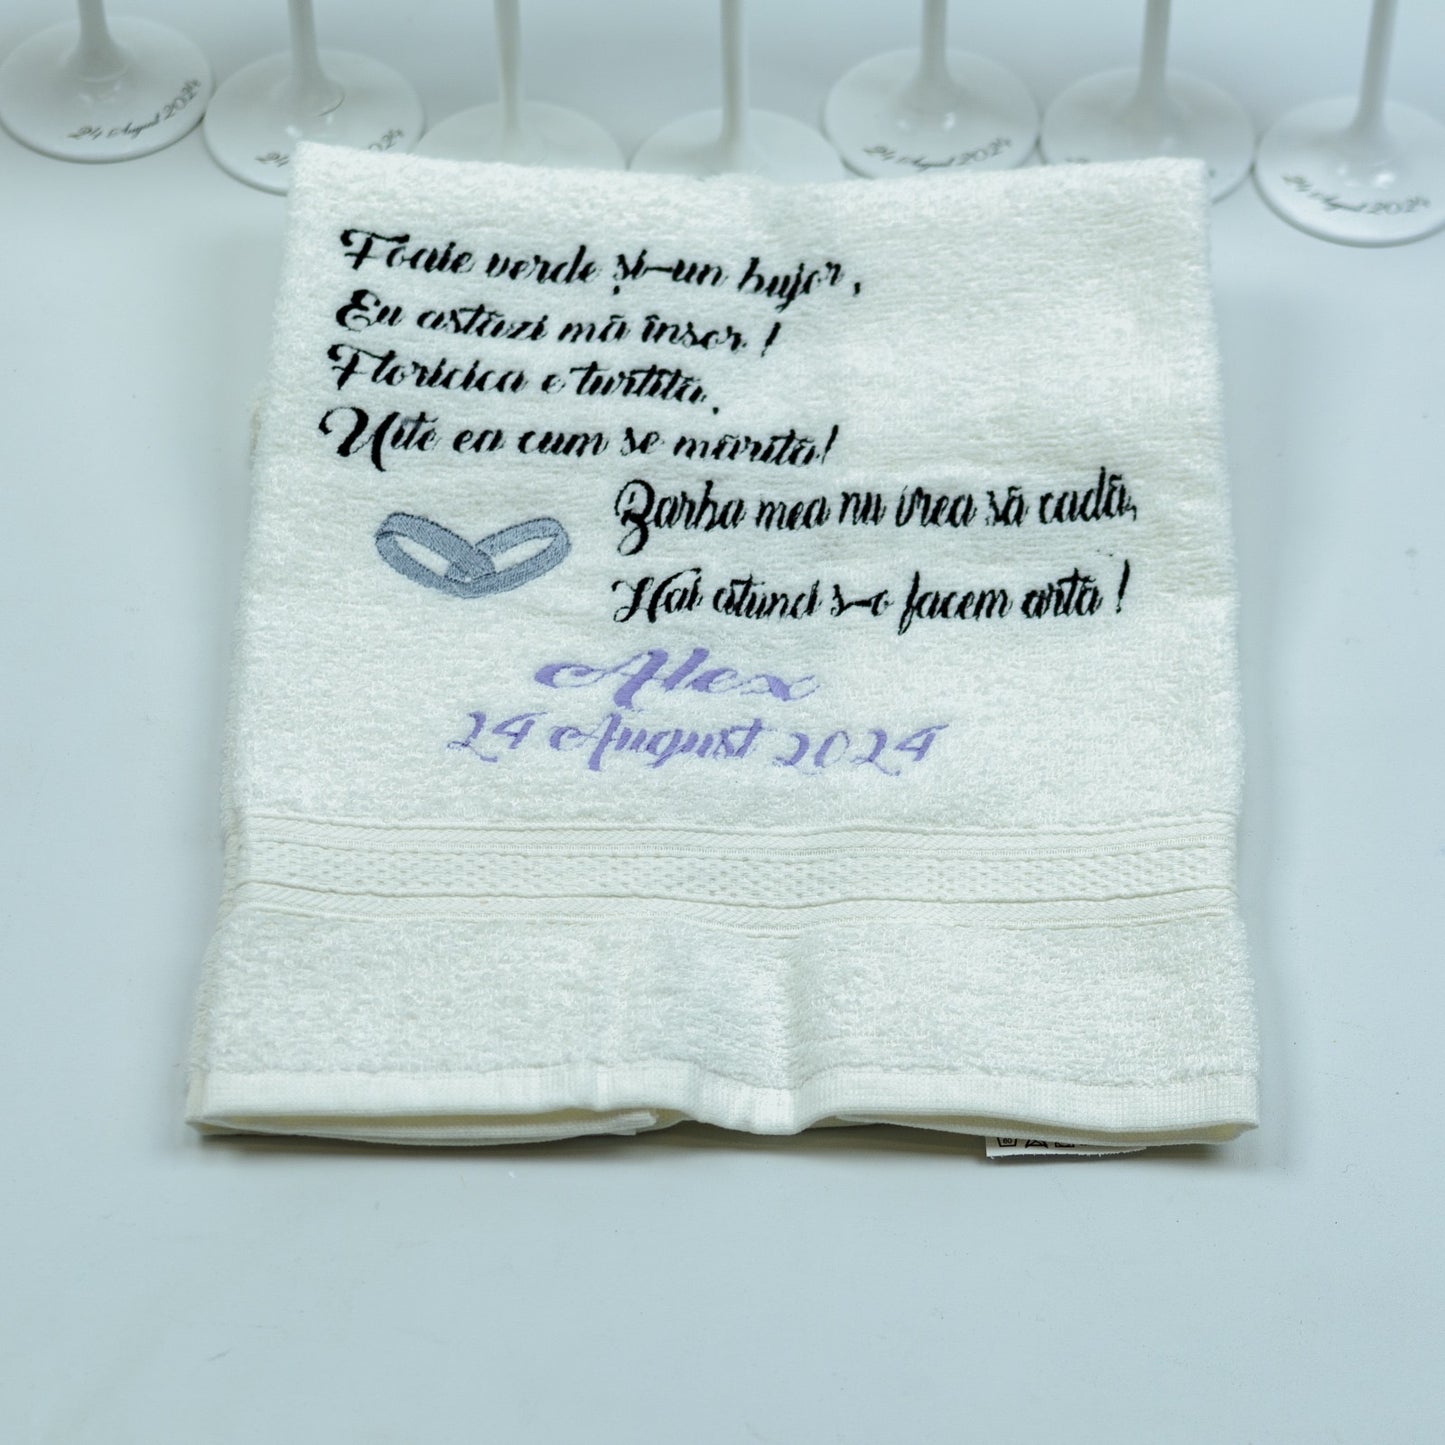 24 August 2024
24
2024
24 August 2024
24 August 2024
Foaie verde și-un bujor,
Eu astăzi mă însor!
Floricica e turtită,
Uite ea cum se mărită!
Barba mea nu vrea să cadă,
Hai atunci s-o facem artă!
Alex
24 August 2024